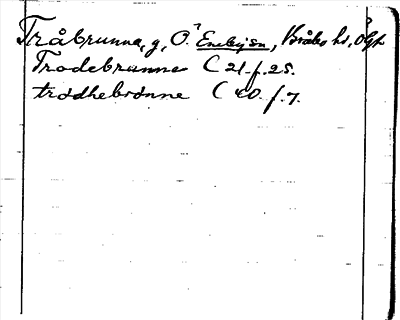 Tråbrunna, g, Ö. Eneby sn, Bråbo hd, Ögh
Trodebrunne C 21. f. 25.
trodhebrönne C 40. f. 7.